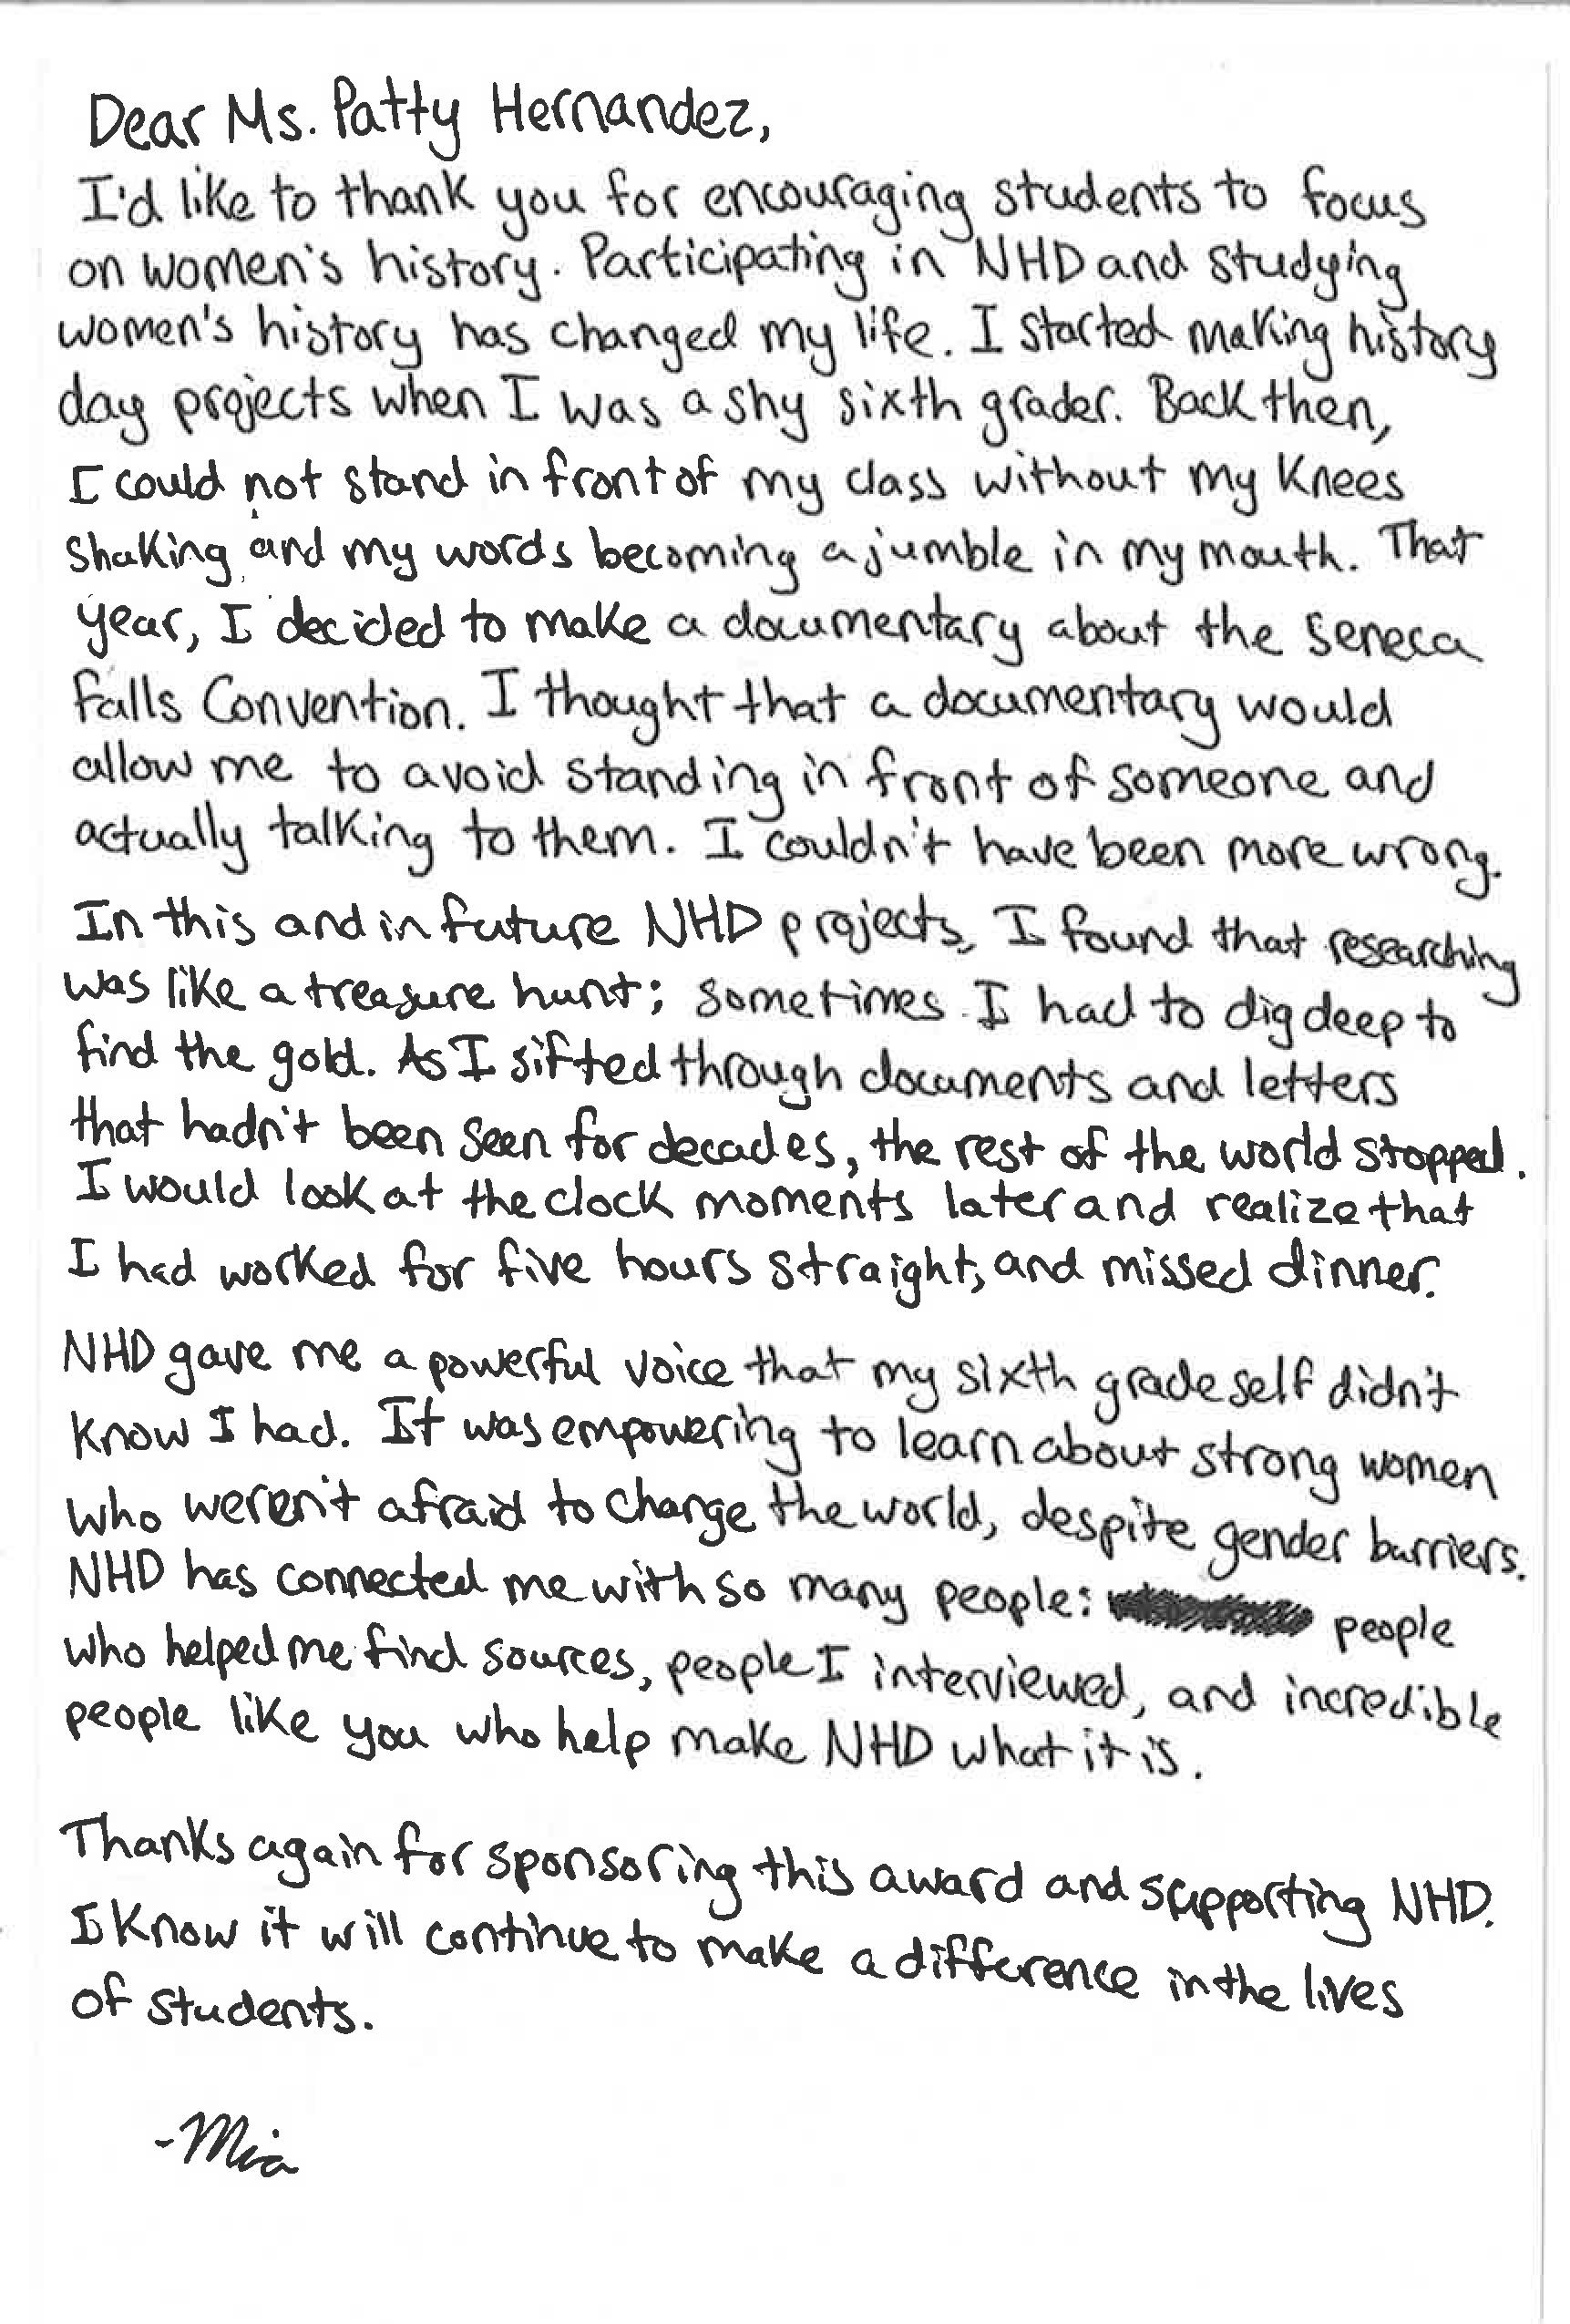 Dear Ms. Patty Hernandez,
I'd like to thank you for encouraging students to focus
on women's history. Participating in NHD and studying
women's history has changed my life. I started making history
day projects when I was a shy sixth grader. Back then,
I could not stand in front of my class without my knees
shaking and my words becoming a jumble in my mouth. That
year, I decided to make a documentary about the Seneca
Falls Convention. I thought that a documentary would
allow me to avoid standing in front of someone and
actually talking to them. I couldn't have been more wrong.
In this and in future NHD projects, I found that researching
was like a treasure hunt; sometimes I had to dig deep to
find the gold. As I sifted through documents and letters
that hadn't been seen for decades, the rest of the world stopped.
I would look at the clock moments later and realize that
I had worked for five hours straight, and missed dinner.
NHD gave me a powerful voice that my sixth grade self didn't
know I had. It was empowering to learn about strong women
who weren't afraid to change the world, despite gender barriers.
NHD has connected me with so many people: people
who helped me find sources, people I interviewed, and incredible
people like you who help make NHD what it is.
Thanks again for sponsoring this award and supporting NHD.
I know it will continue to make a difference in the lives
of students.
-Mia